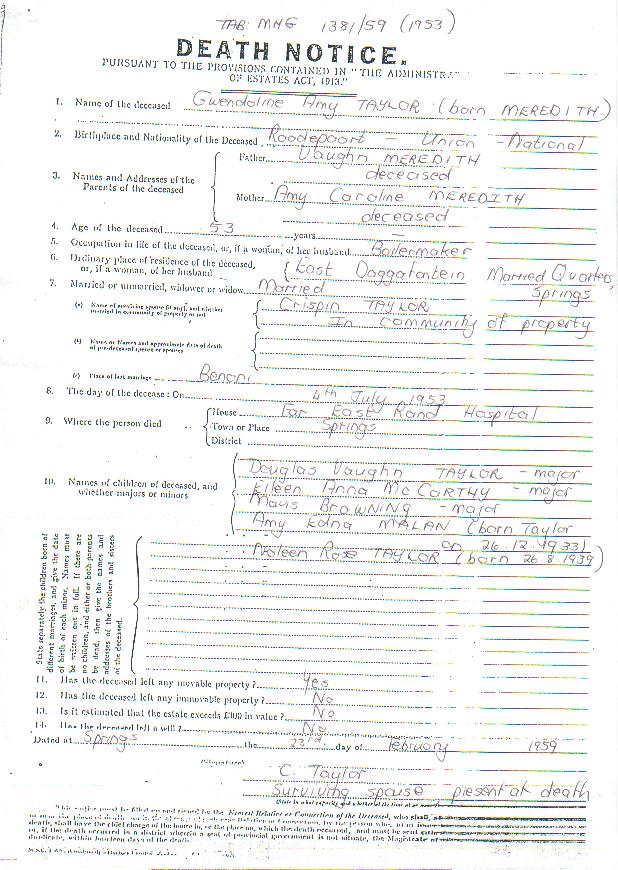 TAB: MHG 1381/59 (1953)
DEATH NOTICE.
PURSUANT TO THE PROVISIONS CONTAINED IN "THE ADMINISTRA
OF ESTATES ACT, 1913."
1. Name of the deceased Gwendoline Amy TAYLOR (born MEREDITH)
2. Birthplace and Nationality of the Deceased Roodepoort - Union -National
3. Names and Addresses of the Parents of the deceased
Father Vaughn MEREDITH
deceased
Mother Amy Caroline MEREDITH
deceased
4. Age of the deceased 53 years
5. Occupation in life of the deceased, or, if a woman, of her husband Boilermaker
6. Ordinary place of residence of the deceased, or, if a woman, of her husband East Daggafontein Married Quarters, Springs
7. Married or unmarried, widower or widow Married
(a) Name of surviving spouse (if any), and whether married in community of property or not
Crispin TAYLOR
In community of property
(b) Name or Names and approximate date of death of pre-deceased spouse or spouses
(c) Place of last marriage Benoni
8. The day of the decease : On 4th July 1953
9. Where the person died
House Far East Rand Hospital
Town or Place Springs
District
10. Names of children of deceased, and whether majors or minors
Douglas Vaughn TAYLOR - major
Eileen Anna McCARTHY - major
Mavis BROWNING - major
Amy Edna MALAN (born Taylor
on 26.12.1933)
Noleen Rose TAYLOR (born 26.8.1939)
State separately the children born of
different marriages, and give the date
of birth of each minor. Names must
be written out in full. If there are
no children, and either or both parents
be dead, then give the names and
addresses of the brothers and sisters
of the deceased.
11. Has the deceased left any movable property ? Yes
12. Has the deceased left any immovable property ? No
13. Is it estimated that the estate exceeds £300 in value ? No
14. Has the deceased left a will ? No
Dated at Springs the 23rd day of February 1959
(Signature)
C. Taylor
Surviving spouse present at death
This notice must be filled up and signed by the Nearest Relative or Connection of the Deceased, who shall
death, shall have the chief charge of the house in, or the place on, which the death occurred, and must be sent
or, if the death occurred in a district wherein a seat of provincial government is not situate, the Magistrate of
duplicate, within fourteen days of the death.